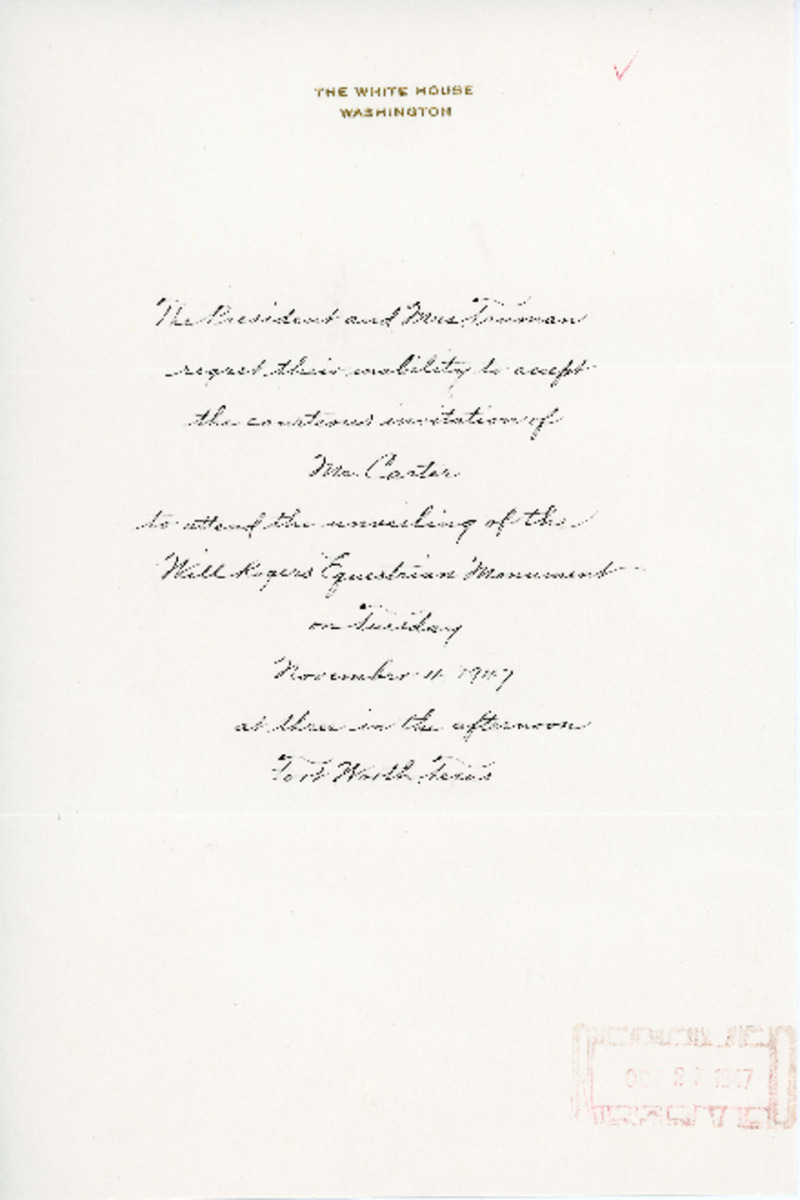 THE WHITE HOUSE
WASHINGTON
The President and Mrs. Truman
regret their inability to accept
the courteous invitation of
Mr. Carter
to attend the unveiling of the
Will Rogers Equestrian Monument
on Tuesday
November 11 1947
at three in the afternoon
Fort Worth Texas
1947